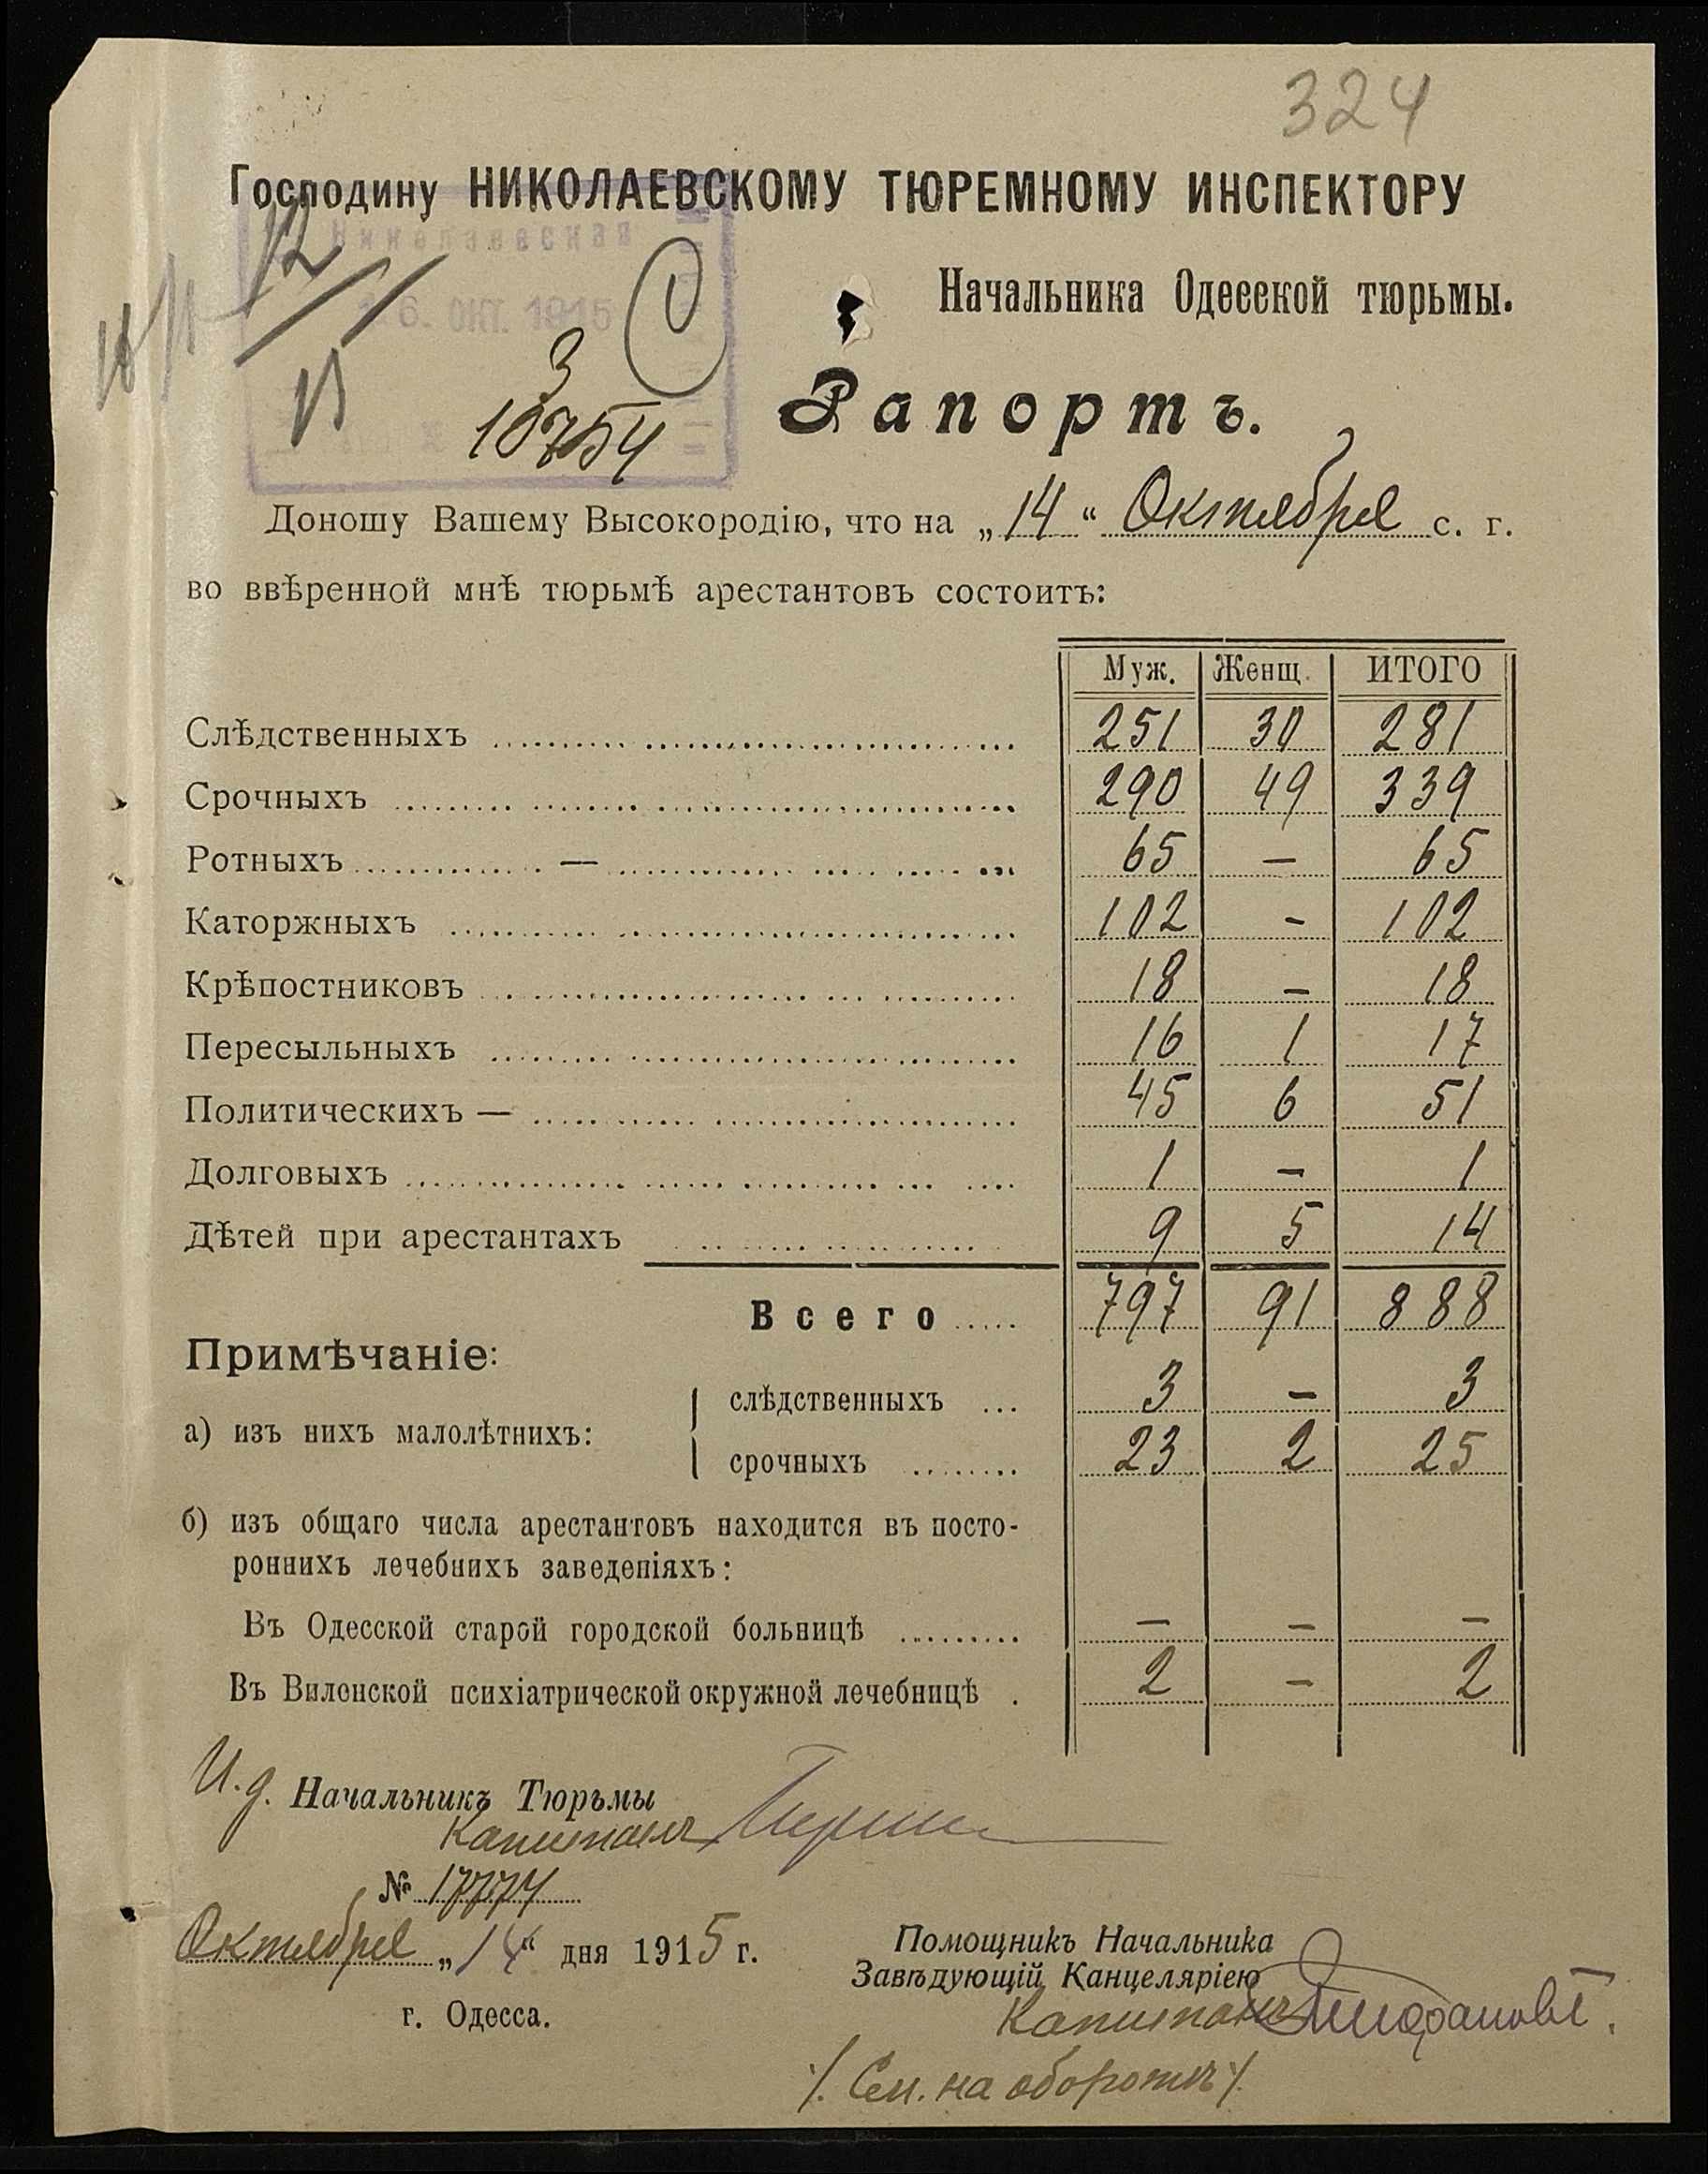 324
Господину НИКОЛАЕВСКОМУ ТЮРЕМНОМУ ИНСПЕКТОРУ
Николаевская
Начальника Одесской тюрьмы.
6. ОКТ. 1915
3
10754
Рапортъ.
Доношу Вашему Высокородію, что на „14“ Октября с. г.
во ввѣренной мнѣ тюрьмѣ арестантовъ состоитъ:
Муж. Женщ. ИТОГО
Слѣдственныхъ 251 30 281
Срочныхъ 290 49 339
Ротныхъ — 65 — 65
Каторжныхъ 102 - 102
Крѣпостниковъ 18 - 18
Пересыльныхъ 16 1 17
Политическихъ — 45 6 51
Долговыхъ 1 - 1
Дѣтей при арестантахъ 9 5 14
Всего 797 91 888
Примѣчаніе:
а) изъ нихъ малолѣтнихъ: слѣдственныхъ 3 - 3
срочныхъ 23 2 25
б) изъ общаго числа арестантовъ находится въ посто-
роннихъ лечебнихъ заведеніяхъ:
Въ Одесской старой городской больницѣ — — —
Въ Виленской психіатрической окружной лечебницѣ 2 - 2
И.д. Начальникъ Тюрьмы
Капитанъ
№ 17774
Октября „14“ дня 1915 г.
г. Одесса.
Помощникъ Начальника
Завѣдующій Канцеляріею
Капитанъ
/. См. на оборотѣ /.